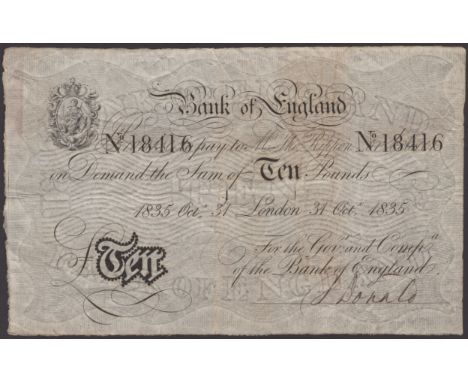 Bank of England
No 18416 pay to Mr M. Rippon No 18416
on Demand the Sum of Ten Pounds
1835 Octr. 31 London 31 Octr. 1835
£Ten
For the Govr. and Compa.
of the Bank of England.
J Donald